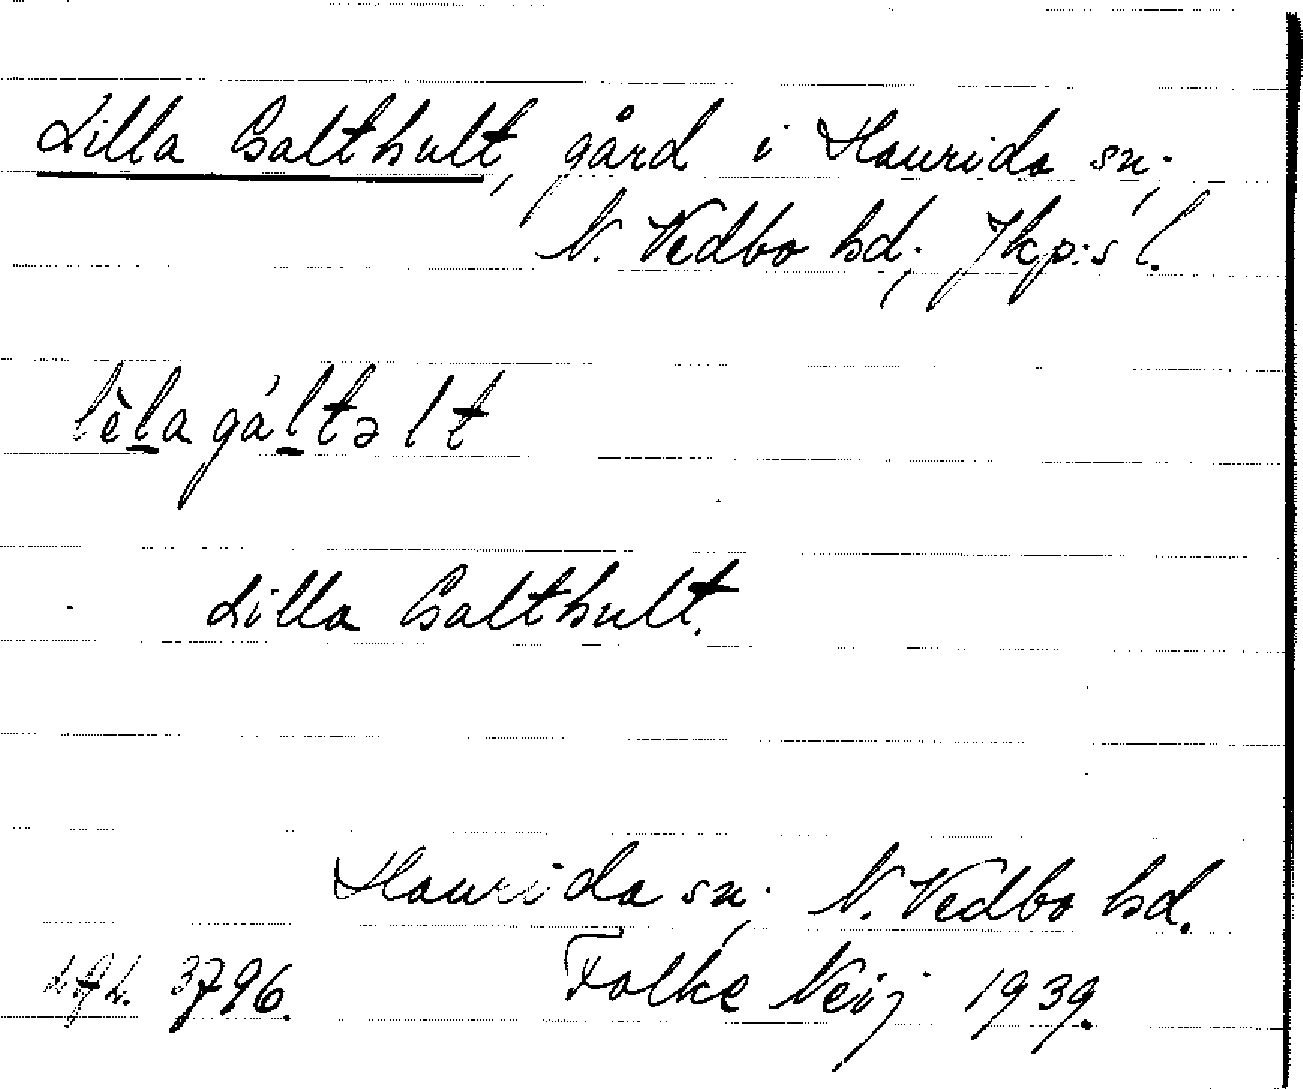 Lilla Galthult, gård i Haurida sn;
N. Vedbo hd; Jkp:s l.
lèla gáltəlt
Lilla Galthult.
Haurida sn; N. Vedbo hd.
3796. Folke Neij 1939.